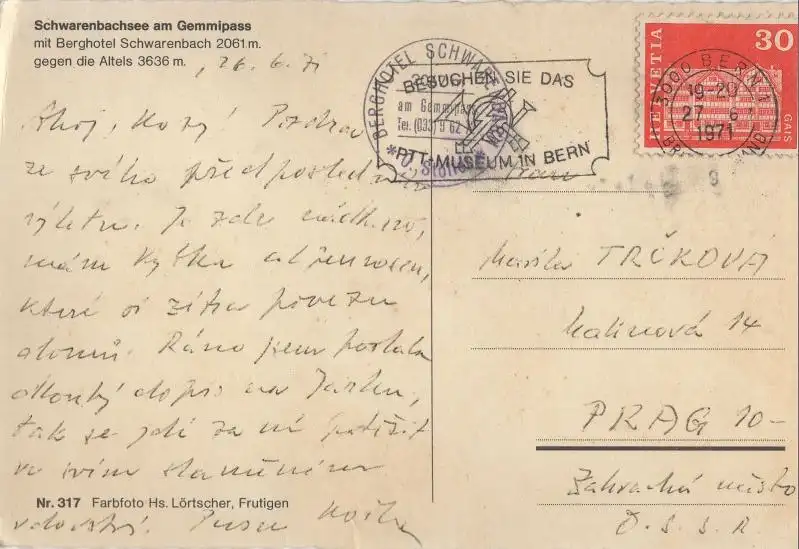 Schwarenbachsee am Gemmipass
mit Berghotel Schwarenbach 2061 m.
gegen die Altels 3636 m.
26.6.71
Ahoj, Pozdrav
ze svého předposled
výletu. Je zde nádherně,
mám kytku
které si zítra povezu
domů. Ráno jsem poslala
dlouhý dopis na
tak se jdi za ní potěšit
ve svém
Nr. 317 Farbfoto Hs. Lörtscher, Frutigen
BERGHOTEL SCHWARENBACH
am Gemmipass
Tel. (033) 9 62
BESUCHEN SIE DAS
PTT-MUSEUM IN BERN
HELVETIA
30
GAIS
3000 BERN 1
19-20
27. 6.
1971
TRČKOVÁ
Malinová 14
PRAG 10-
Zahradní město
Č.S.S.R.